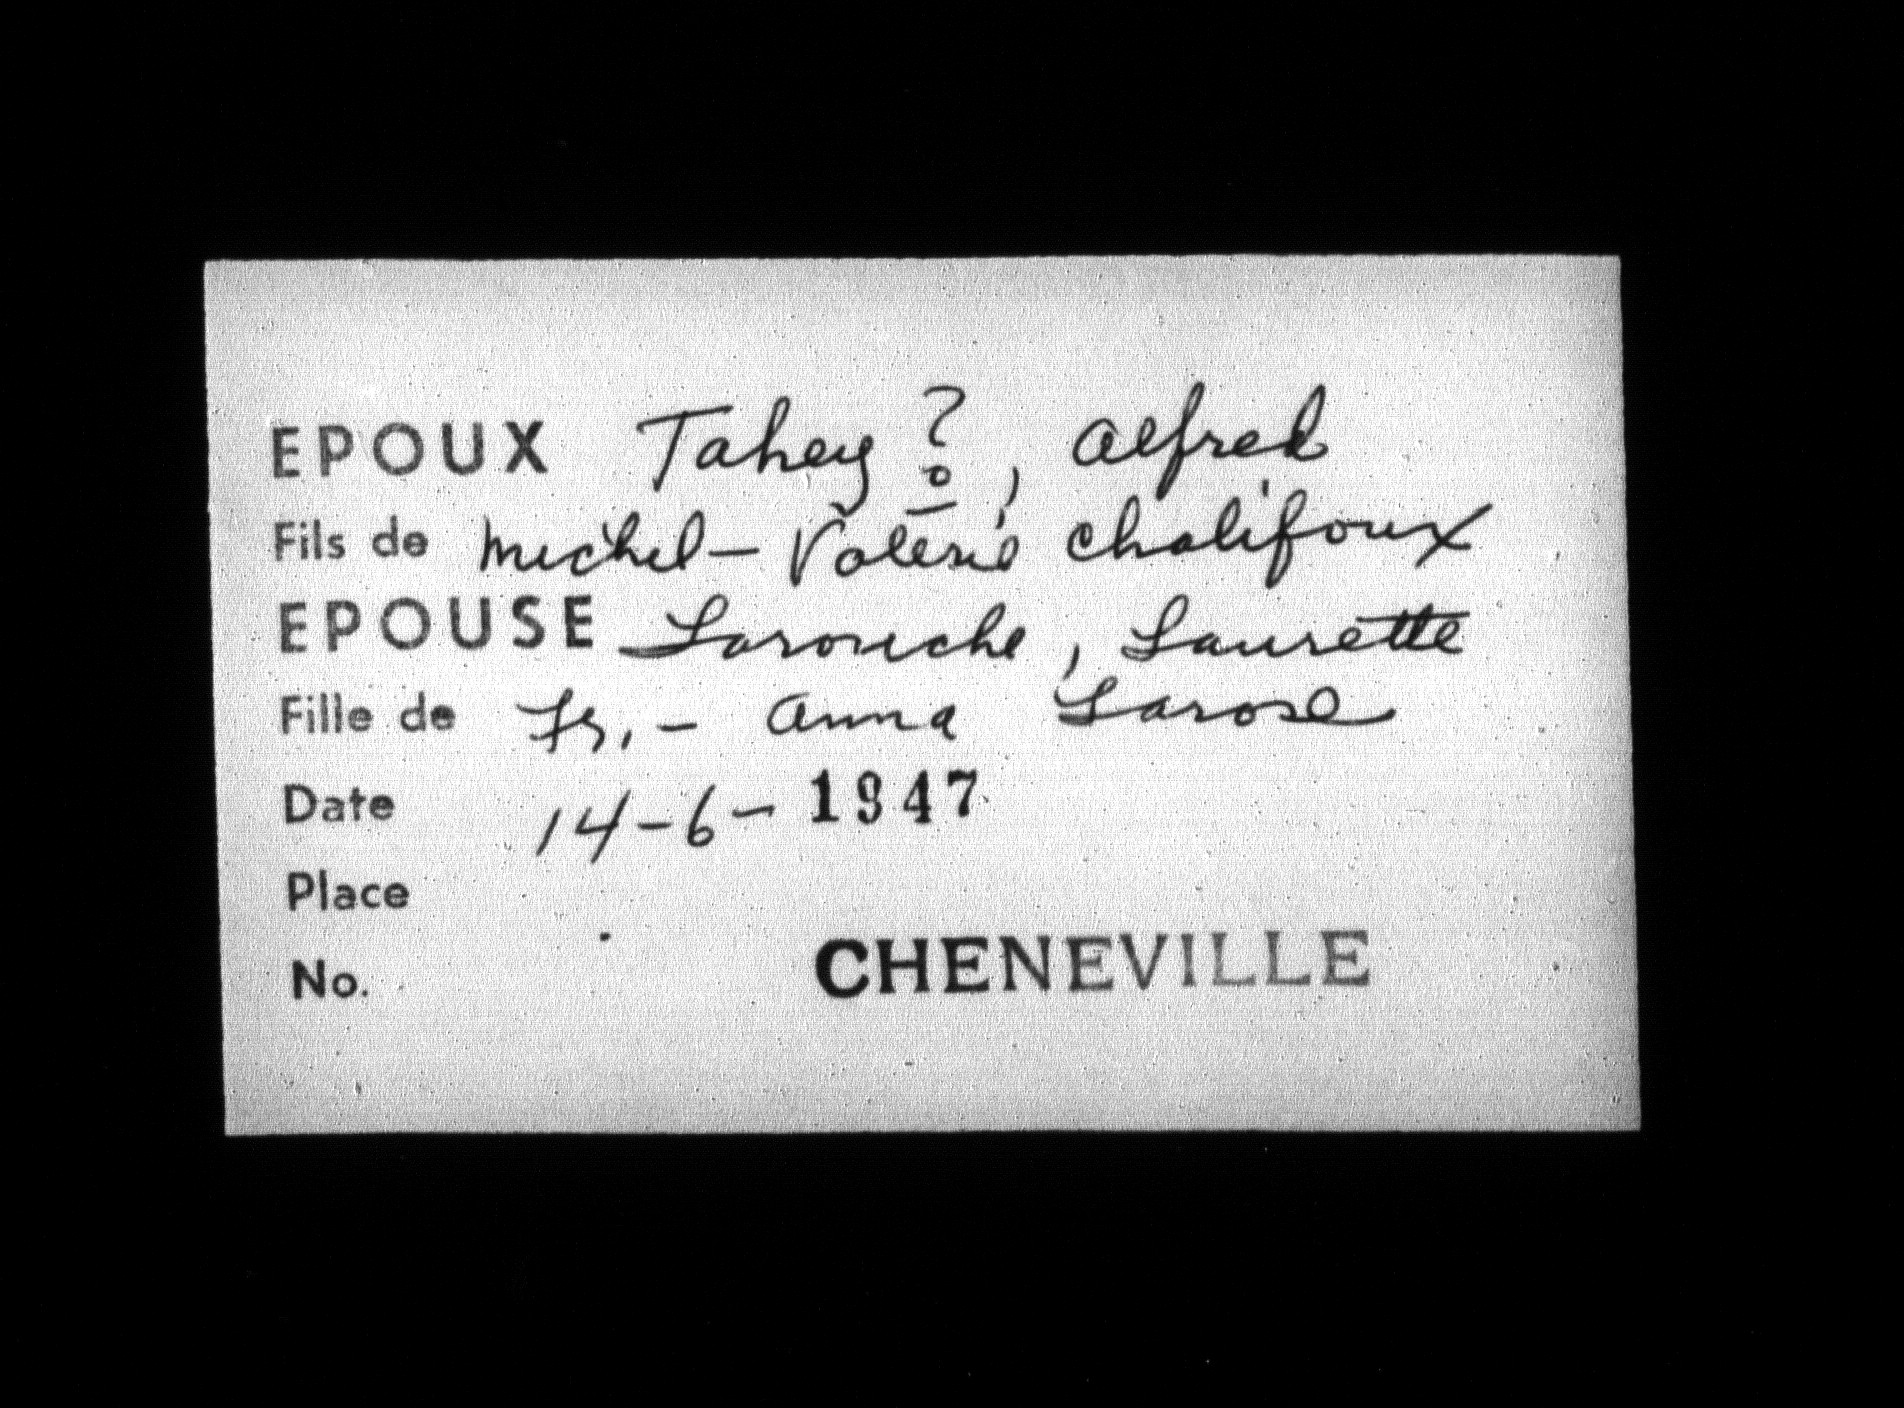 EPOUX Tahey ?, Alfred
Fils de Michel - Valérie Chalifoux
EPOUSE Larouche, Laurette
Fille de Fs. - Anna Larose
Date 14-6-1947
Place
No. CHENEVILLE